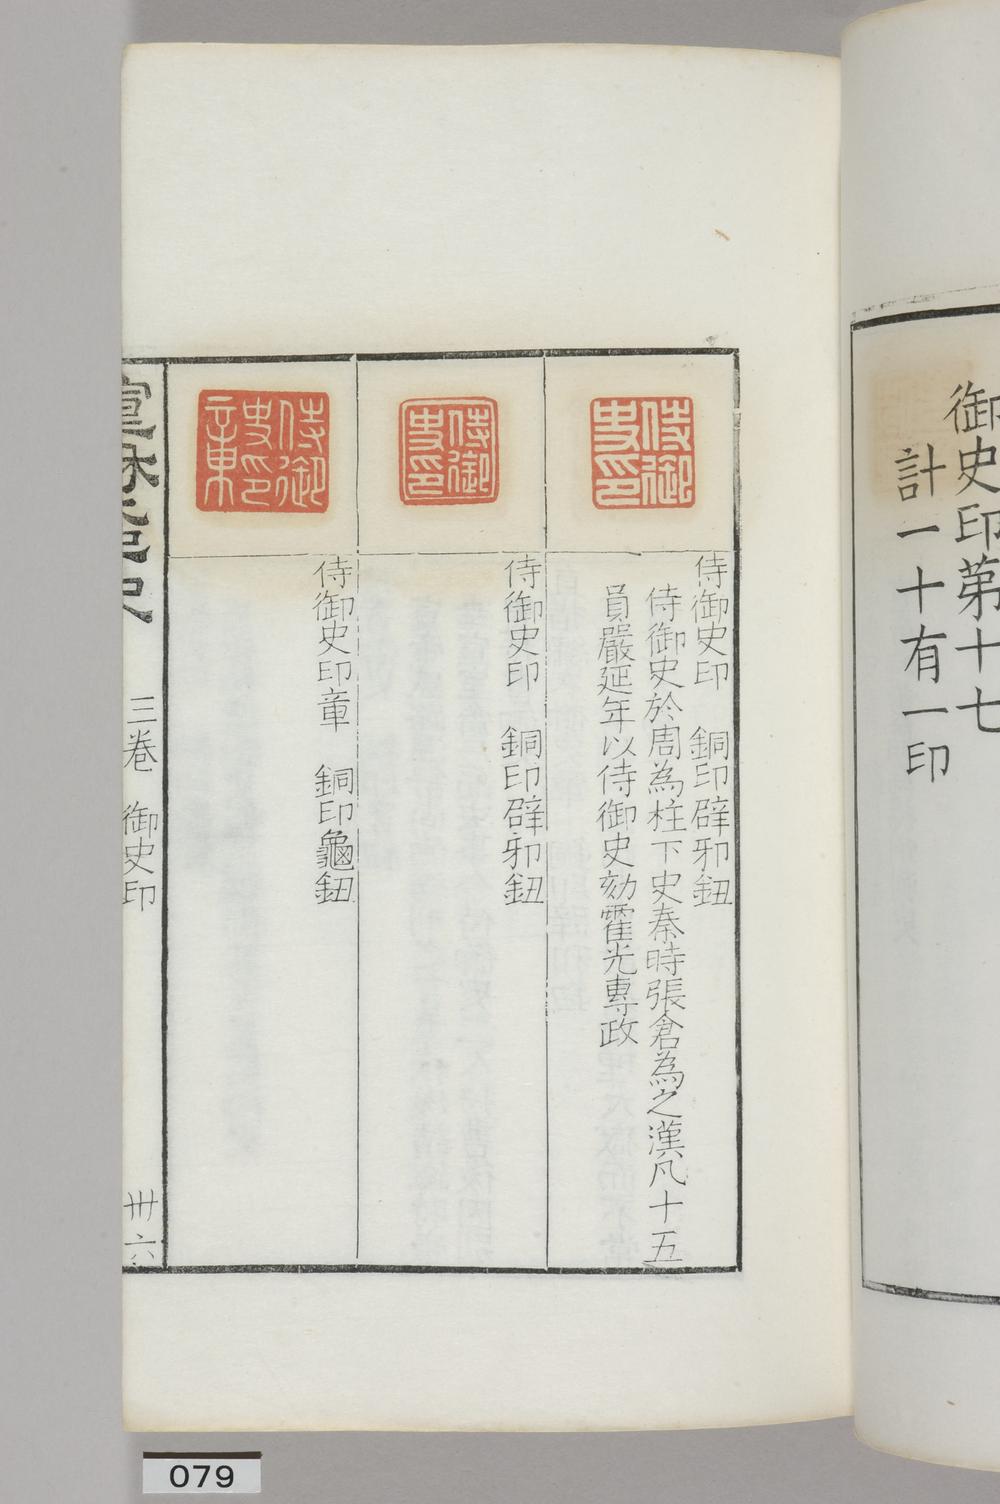 御史印苐十七
計一十有一印
侍御史印
侍御史印　銅印辟邪鈕
侍御史於周為柱下史秦時張倉為之漢凡十五
員嚴延年以侍御史劾霍光專政
侍御史印
侍御史印　銅印辟邪鈕
侍御史印章
侍御史印章　銅印龜鈕
宣龢
史
三卷
御史印
卅六
079